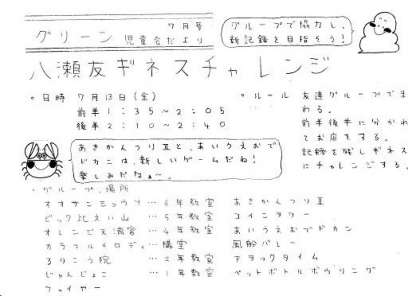 グリーン 7月号
児童会だより
グループで協力し、
新記録を目指そう!
八瀬友ギネスチャレンジ
・日時 7月13日(金)
前半1:35〜2:05
後半2:10〜2:40
・ルール 友達グループでまわる。
前半後半に分かれてお店をする。
記録を残しギネスにチャレンジする。
あきかんつりⅡと、あいうえおで
ドカンは、新しいゲームだね!
楽しみだなぁ〜。
・グループ、場所
…6年教室 あきかんつりⅡ
ビック比えい山 …5年教室 コインタワー
…4年教室 あいうえおでドカン
カラフルメロディ…講堂 風船バレー
…2年教室 アタックタイム
…1年教室 ペットボトルボウリング
ファイヤー